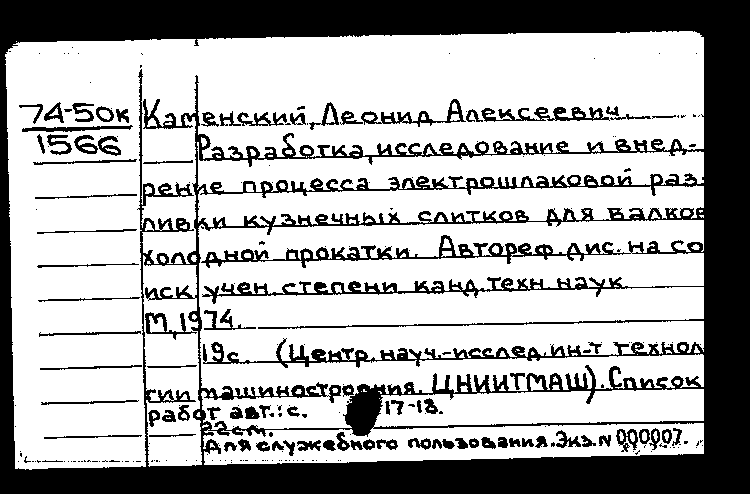 74-50к
1566
Каменский, Леонид Алексеевич.
Разработка, исследование и внед-
рение процесса электрошлаковой раз-
ливки кузнечных слитков для валков
холодной прокатки. Автореф. дис. на со
иск. учен. степени канд. техн. наук
М, 1974.
19с. (Центр. науч.-исслед. ин-т технол
гии машиностроения. ЦНИИТМАШ). Список
работ авт.: с. 17-18.
22см.
Для служебного пользования. Экз. N 000007.